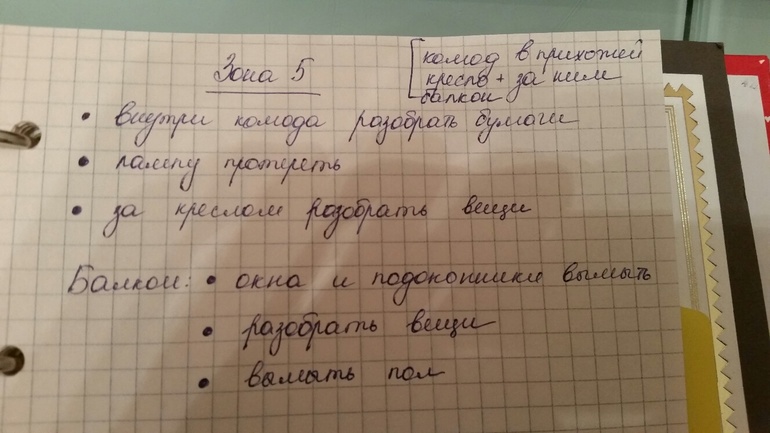 Зона 5
комод в прихожей
кресло + за ним
балкон
• внутри комода разобрать бумаги
• лампу протереть
• за креслом разобрать вещи
Балкон: • окна и подоконники вымыть
• разобрать вещи
• вымыть пол